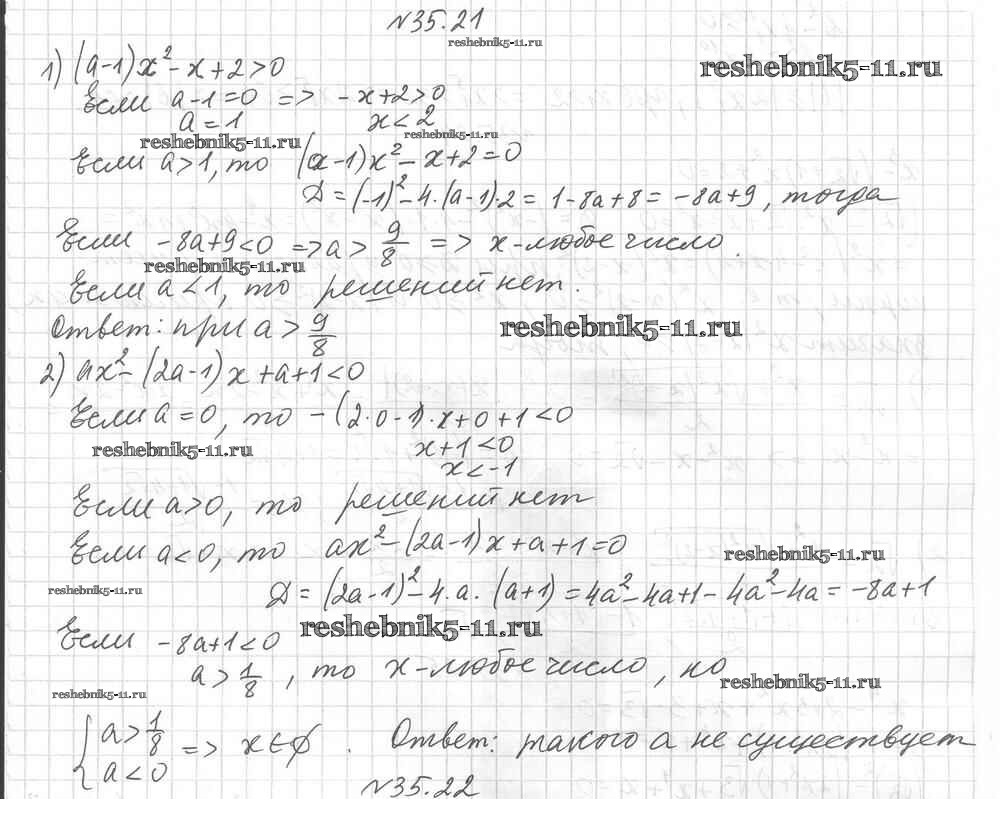 №35.21
reshebnik5-11.ru
1) (a-1)x²-x+2>0
reshebnik5-11.ru
Если a-1=0 => -x+2>0
a=1 x<2
reshebnik5-11.ru reshebnik5-11.ru
Если a>1, то (a-1)x²-x+2=0
D=(-1)²-4·(a-1)·2=1-8a+8=-8a+9, тогда
Если -8a+9<0 => a>9/8 => x-любое число
reshebnik5-11.ru
Если a<1, то решений нет.
Ответ: при a>9/8
reshebnik5-11.ru
2) ax²-(2a-1)x+a+1<0
Если a=0, то -(2·0-1)·x+0+1<0
reshebnik5-11.ru x+1<0
x<-1
Если a>0, то решений нет
Если a<0, то ax²-(2a-1)x+a+1=0
reshebnik5-11.ru
reshebnik5-11.ru
D=(2a-1)²-4·a·(a+1)=4a²-4a+1-4a²-4a=-8a+1
Если -8a+1<0
reshebnik5-11.ru
a>1/8, то x-любое число, но
reshebnik5-11.ru reshebnik5-11.ru
{a>1/8
a<0 => x∈∅. Ответ: такого a не существует
№35.22